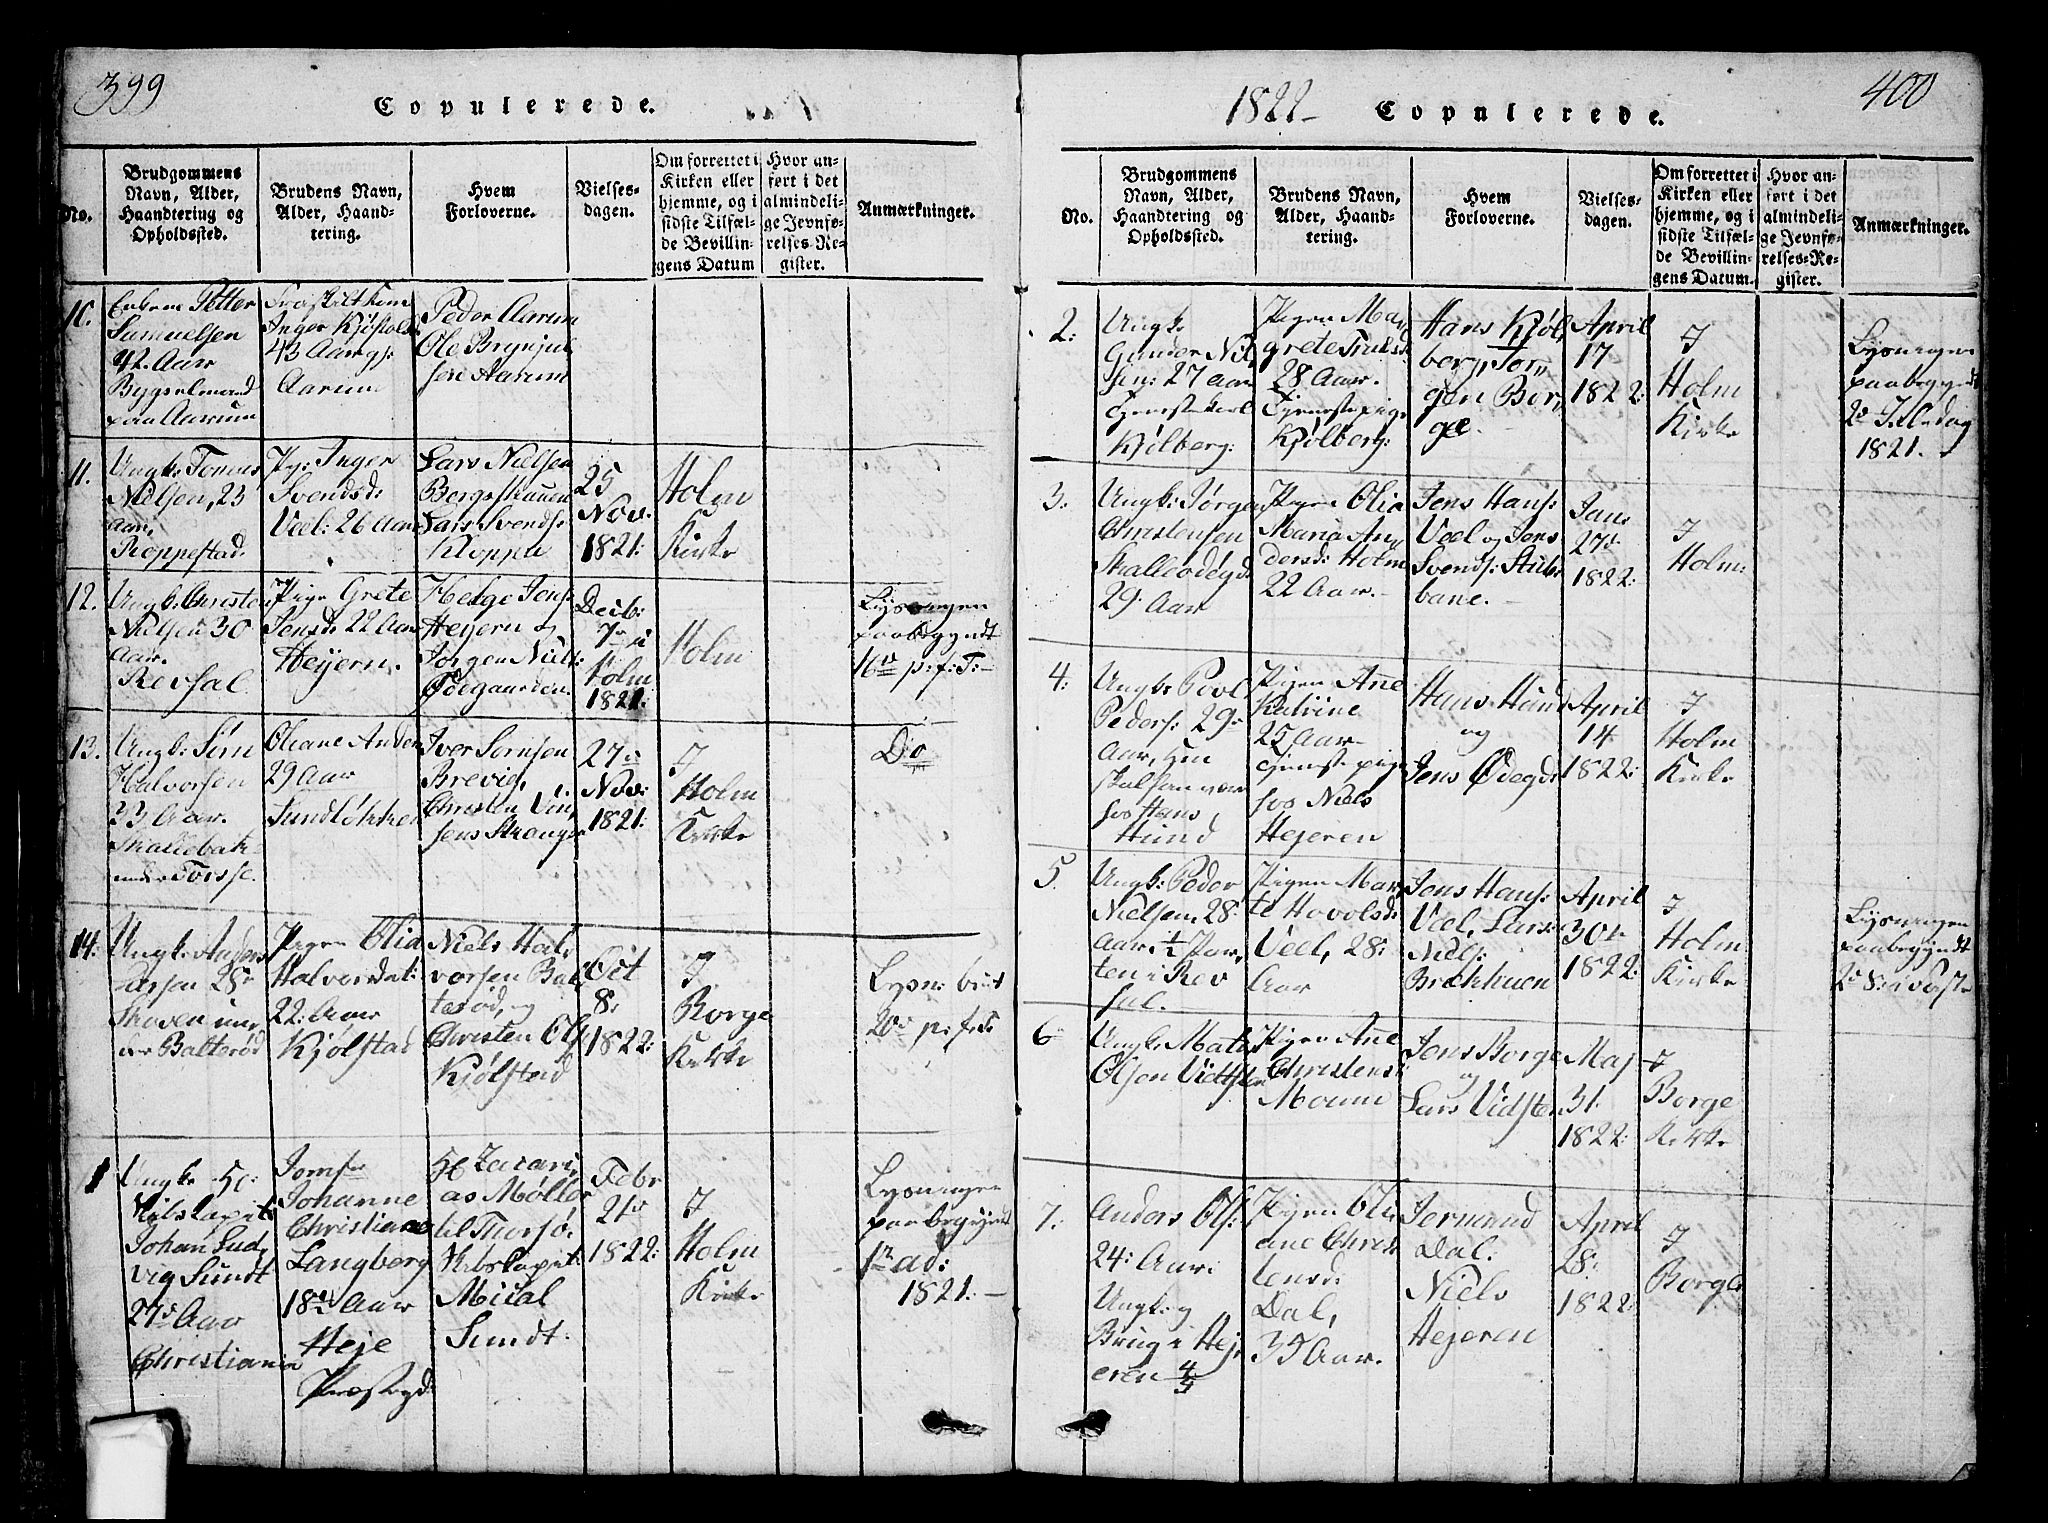 399
Copulerede.
No.
Brudgommens
Navn, Alder,
Haandtering og
Opholdssted.
Brudens Navn,
Alder, Haand-
tering.
Hvem
Forloverne.
Vielses-
dagen.
Om forrettet i
Kirken eller
hjemme, og i
sidste Tilfæl-
de Bevillin-
gens Datum
Hvor an-
ført i det
almindeli-
ge Jevnfø-
relses-Re-
gister.
Anmærkninger.
10.
Petter
Samuelsen
42. Aar
Bygselmand
paa Aarum
Fraskilt kone
Inger Kjøstols
43 Aar
Aarum
Peder Aarum
Ole Brynjul
sen Aarum
11.
Ungk: Tomas
Nielsen, 23
Aar,
Roppestad.
Pig: Inger
Svendsd:
Veel: 26 Aar
Lars Nielsen
Lars Svends:
Kloppen
25
Nov.
1821:
Holm
Kirke
12.
Ungk: Christen
Nielsen 30
Aar.
Refsal.
Pige Grete
Jensd: 22 Aar
Heyern.
Helge Jens:
Heyern og
Jørgen Niels:
Ødegaarden.
Decb:
7de i
Holm
1821:
Holm
Lysningen
paabegyndt
16de p: f: T:
13.
Ungk: Sim
Halvorsen
33 Aar.
under Torsse.
Oliane Ander
29 Aar
Sundløkken
Iver Sørnsen
Brevig,
Christen
27de
Nov:
1821:
I
Holm
Kirke
Do
14.
Ungk: Anders
28
Skoven un
der Balterød
Pigen Olia
Halvorsdat:
22: Aar
Kjølstad
Niels Hal
vorsen Bal
terød, og
Christen Ols
Kjølstad
Oct
8:
1822:
I
Borge
Kirke
Lysn: beg
20de p: f: T:
1
Ungk:
Johan Lud,
vig Sundt
27 Aar
Christiania
Jomfr
Johanne
Christiane
Langberg
18 Aar
Heje
Præstegd
Zacari,
as Møller
til Thorsø
Skibskapt:
Mical
Sundt:
Febr
21de
1822:
I
Holm
Kirke
Lysningen
paabegyndt
1ste ad:
1821:
1822
Copulerede.
400
No.
Brudgommens
Navn, Alder,
Haandtering og
Opholdssted.
Brudens Navn,
Alder, Haand-
tering.
Hvem
Forloverne.
Vielses-
dagen.
Om forrettet i
Kirken eller
hjemme, og i
sidste Tilfæl-
de Bevillin-
gens Datum.
Hvor an-
ført i det
almindeli-
ge Jevnfø-
relses-Re-
gister.
Anmærkninger.
2:
Ungk:
Gunder Nil,
sen: 27 aar
Tjenestekarl
Kjølberg:
Pigen Mar,
grete
28 Aar.
Tjenestepige
Kjølberg:
Hans Kjøl,
berg, Tor,,
gen Bor,,
ge.
April
17
1822:
I
Holm
Kirke
Lysningen
paabegyndt
2d Juledag
1821.
3:
Ungk: Jørgen
Christensen
29: Aar
Pigen Olia
Maria An,
dersd: Holm
22 Aar.
Jens Hans:
Veel og Jens
Svends: Stub
bane.
Jan:
27de
1822:
I
Holm:
4:
Ungk: Povl
Peders: 29
Aar,
hos Hans
Hund
Pigen Ane
Katrine
25 Aar
tjenestepige
hos Niels
Hejeren
Hans Hund
og
Jens Ødegd:
April
14
1822:
I
Holm
Kirke
5
Ungk: Peder
Nielsen 28:
Aar: 1/2 Par,
ten i Rev
sal.
Pigen Mar,
te Hovolsd:
Veel, 28:
Aar
Jens Hans:
Veel, Lars
Niels:
Brækhuen
April
30te
1822:
I
Holm
Kirke
Lysningen
paabegyndt
2d S: i Faste
6
Ungk: Mats
Olsen Vidsten
Pigen Ane
Christensd
Moum
Jens Borge
og
Lars Vidsten
Maj
31.
1822:
I
Borge
Kirke
7:
Anders Ols:
24: Aar:
Ungk: og
Brug i Hej,
eren 4/5
Pigen Oli
ane Chris
tensd:
Dal,
35 Aar.
Jermund
Dal.
Niels
Hejeren
April
28:
1822:
I
Borge